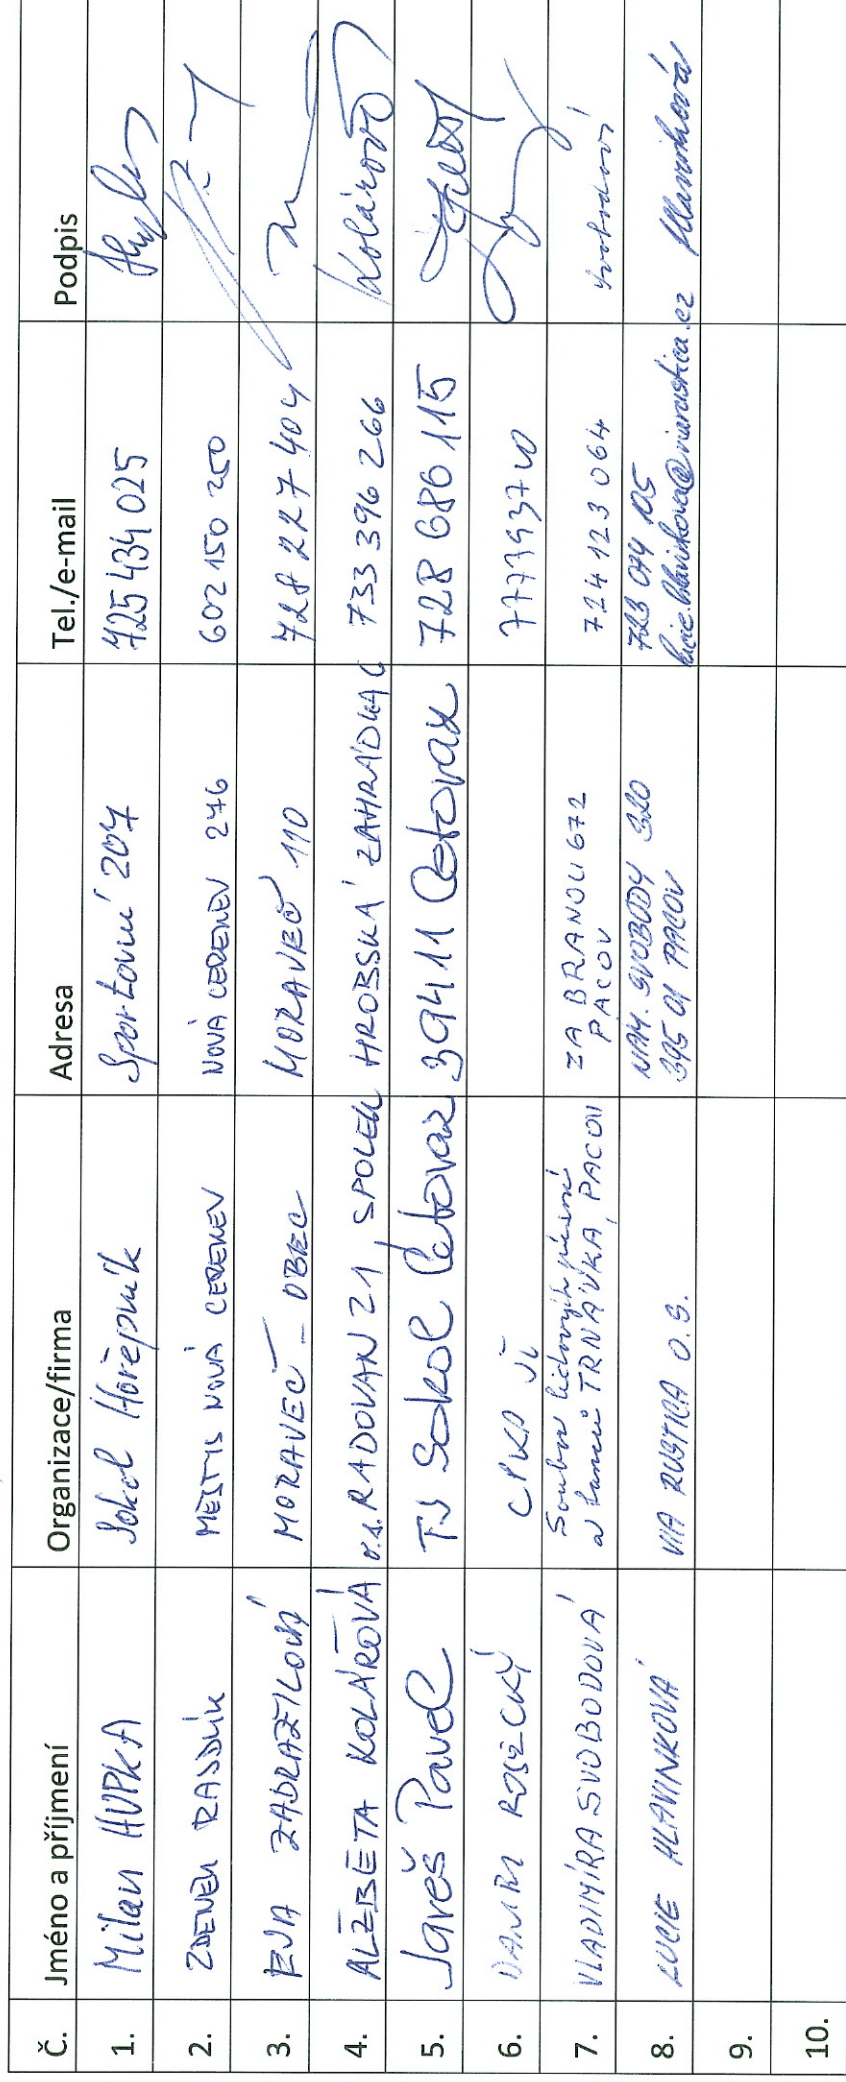 Č. Jméno a příjmení Organizace/firma Adresa Tel./e-mail Podpis
1. Milan HUPKA Sokol Hořepník Sportovní 207 725 434 025
2. ZDENĚK MĚSTYS NOVÁ CEREKEV NOVÁ CEREKEV 276 602 150 250
3. EVA ZADRAŽILOVÁ MORAVEČ - OBEC MORAVEČ 110 728 227 404
4. ALŽBĚTA KOLÁŘOVÁ o.s. RADOVAN Z1, SPOLEK HROBSKÁ ZAHRÁDKA 6 733 396 266 Kolářová
5. Jareš Pavel TJ Sokol Cetoraz 39411 Cetoraz 728 686 115
6. 
7. VLADIMÍRA SVOBODOVÁ Soubor lidových písní
a tanců TRNÁVKA, PACOV ZA BRANOU 672
PACOV 724 123 064 Svobodová
8. LUCIE HLAVINKOVÁ VIA RUSTICA O.S. NÁM. SVOBODY 320
395 01 PACOV 723 074 105
lucie.hlavinkova@viarustica.cz Hlavinková
9.
10.